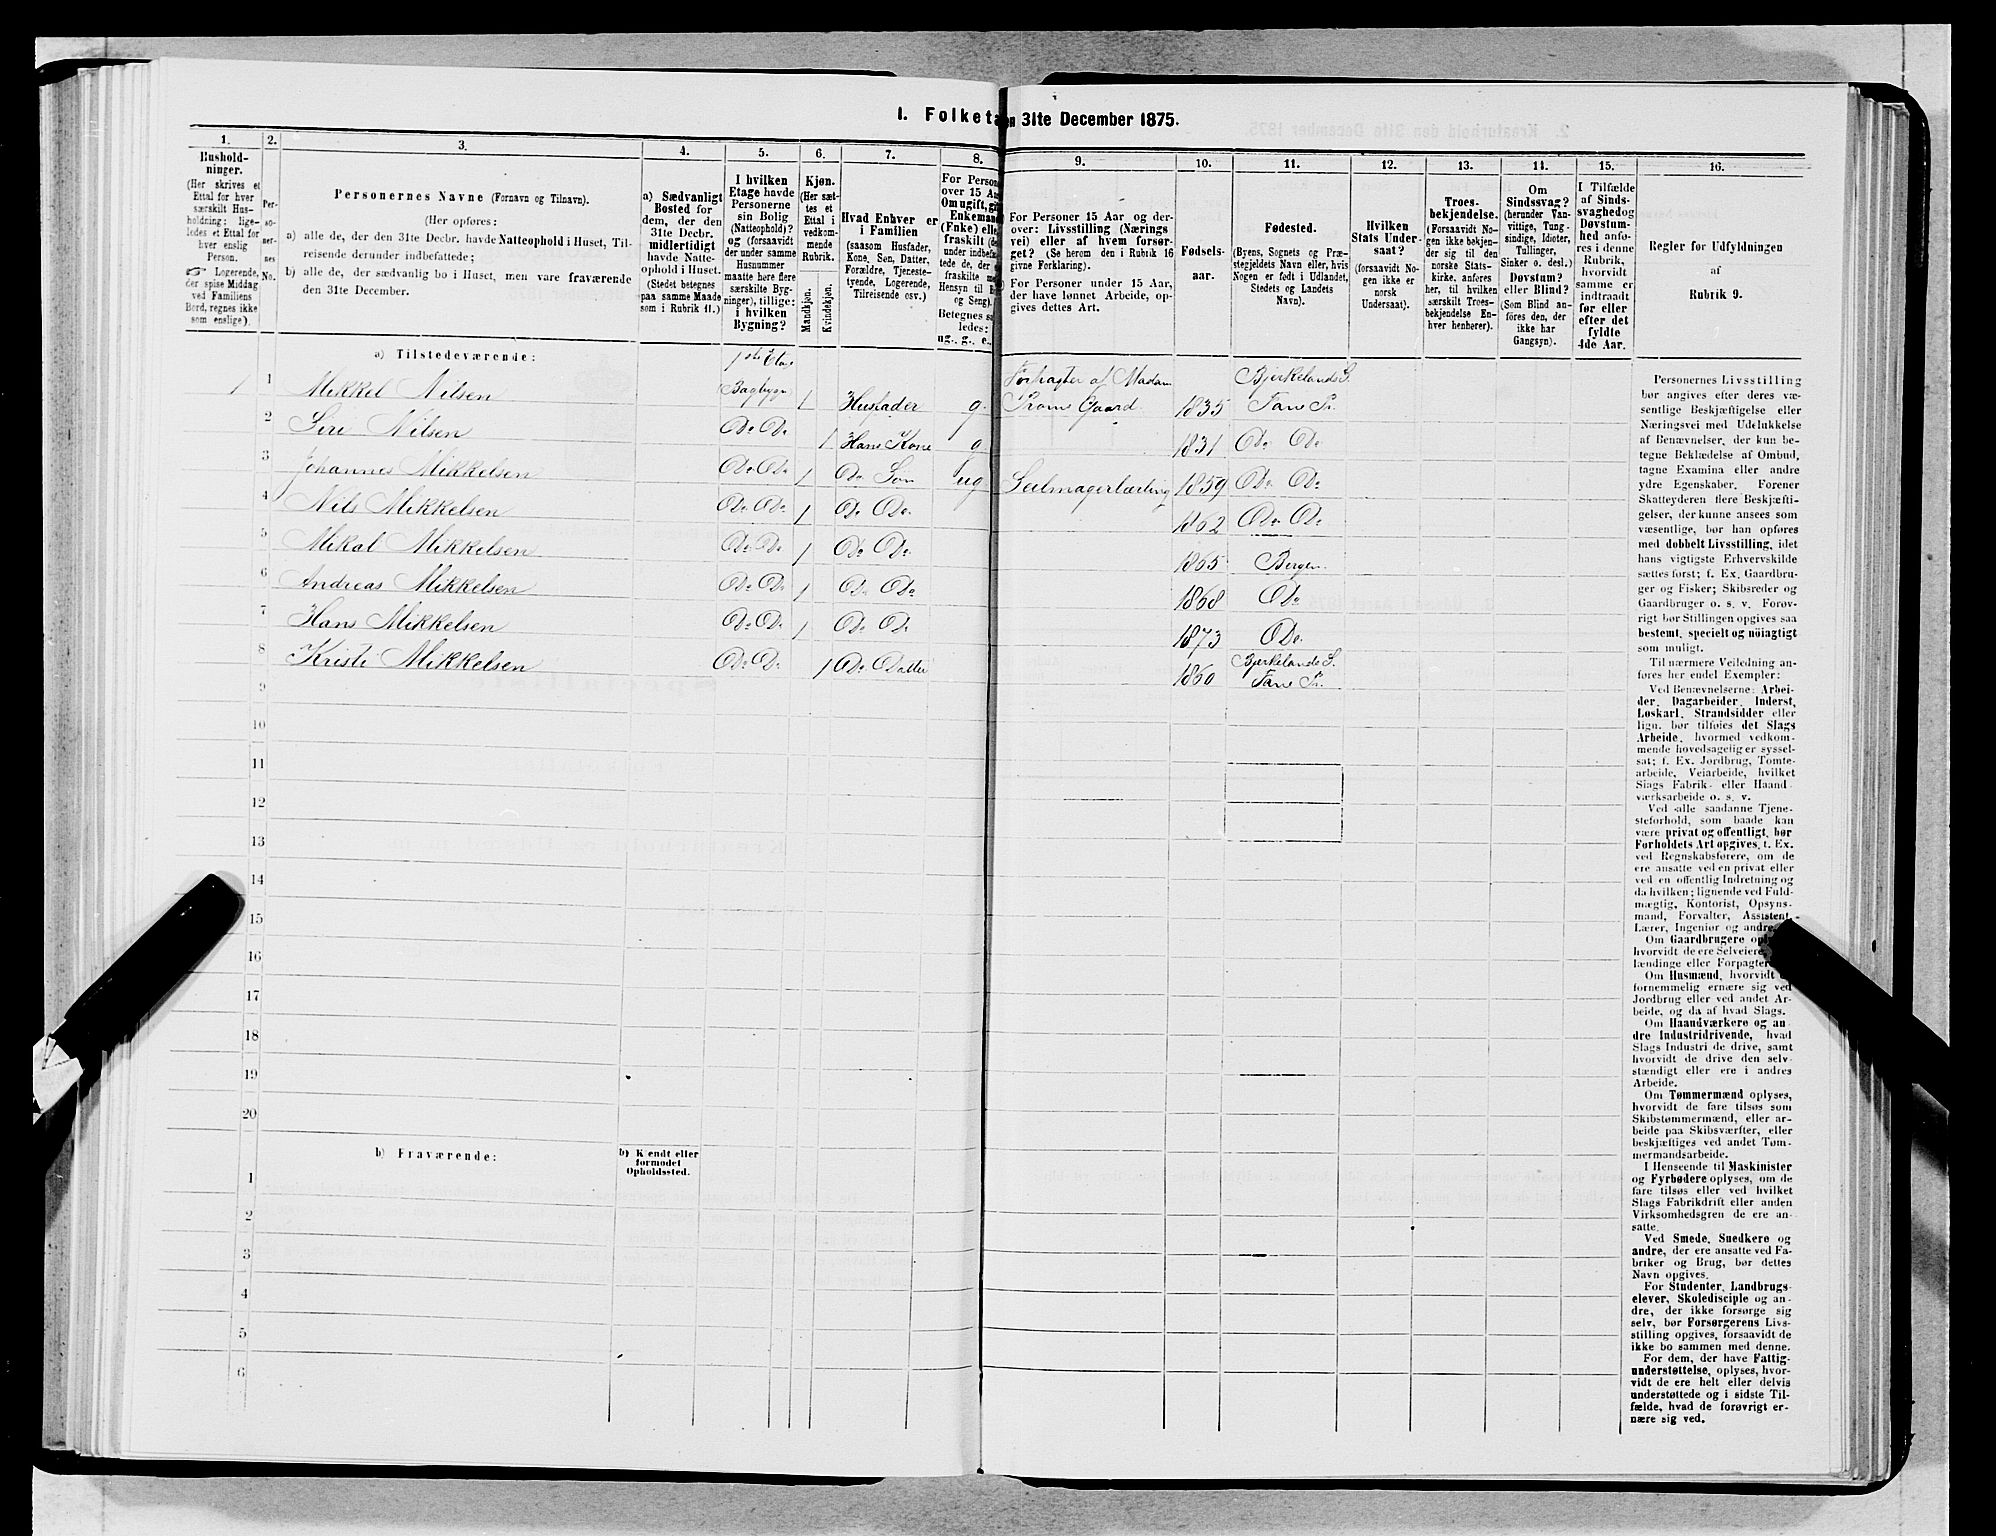 I. Folketæ
n 31te December 1875.
1.
Hushold-
ninger.
(Her skrives et
Ettal for hver
særskilt Hus-
holdning; lige-
ledes et Ettal for
hver enslig
Person.
☞ Logerende,
der spise Middag
ved Familiens
Bord, regnes ikke
som enslige).
2.
Per-
so-
ner-
nes
No.
3.
Personernes Navne (Fornavn og Tilnavn).
(Her opføres:
a) alle de, der den 31te Decbr. havde Natteophold i Huset, Til-
reisende derunder indbefattede;
b) alle de, der sædvanlig bo i Huset, men vare fraværende
den 31te December.
4.
a) Sædvanligt
Bosted for
dem, der den
31te Decbr.
midlertidigt
havde Natte-
ophold i Huset.
(Stedet betegnes
paa samme Maade
som i Rubrik 11.)
5.
I hvilken
Etage havde
Personerne
sin Bolig
(Natteophold)?
og (forsaavidt
der under samme
Husnummer
maatte høre flere
særskilte Byg-
ninger), tillige:
i hvilken
Bygning?
6.
Kjøn.
(Her sæt-
tes et
Ettal i
vedkom-
mende
Rubrik.
Mandkjøn.
Kvindekjøn.
7.
Hvad Enhver er
i Familien
(saasom Husfader,
Kone, Søn, Datter,
Forældre, Tjeneste-
tyende, Logerende,
Tilreisende osv.)
8.
For Person
over 15 Aa
Om ugift, gi
Enkemand
(Enke) elle
fraskilt (de
under indbefa
tede de, der e
fraskilte me
Hensyn til B
og Seng).
Betegnes s
ledes:
ug., g., e.,
9.
For Personer 15 Aar og der-
over: Livsstilling (Nærings
vei) eller af hvem forsør-
get? (Se herom den i Rubrik 16
givne Forklaring).
For Personer under 15 Aar,
der have lønnet Arbeide, op-
gives dettes Art.
10.
Fødsels-
aar.
11.
Fødested.
(Byens, Sognets og Præ-
stegjeldets Navn eller, hvis
Nogen er født i Udlandet,
Stedets og Landets
Navn).
12.
Hvilken
Stats Under-
saat?
(forsaavidt No-
gen ikke er
norsk
Undersaat).
13.
Troes-
bekjendelse.
(Forsaavidt No-
gen ikke bekjen-
der sig til den
norske Stats-
kirke, anføres
her, til hvilken
særskilt Troes-
bekjendelse En-
hver henhører).
14.
Om
Sindssvag?
(herunder Van-
vittige, Tung-
sindige, Idioter,
Tullinger,
Sinker o. desl.)
Døvstum?
eller Blind?
(Som Blind an-
føres den, der
ikke har
Gangsyn).
15.
I Tilfælde
af Sinds-
svaghed og
Døvstum-
hed anfø-
res i denne
Rubrik,
hvorvidt
samme er
indtraadt
før eller
efter det
fyldte
4de Aar.
16.
Regler for Udfyldningen
af
Rubrik 9.
a) Tilstedeværende:
1ste Etag
1 1 Mikkel Nilsen Bagbygn 1 Husfader g. Forpagter af Madam Proms Gaard 1835 Bjerkelands S. Fane Pr.
2 Siri Nilsen Do Do 1 Hans Kone g. 1831 Do Do
3 Johannes Mikkelsen Do Do 1 Do Søn ug Seilmagerlærling 1859 Do Do
4 Nils Mikkelsen Do Do 1 Do Do 1862 Do Do
5 Mikal Mikkelsen Do Do 1 Do Do 1865 Bergen
6 Andreas Mikkelsen Do Do 1 Do Do 1868 Do
7 Hans Mikkelsen Do Do 1 Do Do 1873 Do
8 Kristi Mikkelsen Do Do 1 Do Datter 1860 Bjerkelands S. Fane Pr.
9
10
11
12
13
14
15
16
17
18
19
20
b) Fraværende:
b) Kjendt eller
formodet
Opholdssted.
1
2
3
4
5
6
Personernes Livsstilling
bør angives efter deres væ-
sentlige Beskjæftigelse eller
Næringsvei med Udelukkelse
af Benævnelser, der kun be-
tegne Beklædelse af Ombud,
tagne Examina eller andre
ydre Egenskaber. Forener
Skatteyderen flere Beskjæfti-
gelser, der kunne ansees som
væsentlige, bør han opføres
med dobbelt Livsstilling, idet
hans vigtigste Erhvervskilde
sættes først; f. Ex. Gaardbru-
ger og Fisker; Skibsreder og
Gaardbruger o. s. v. Forøv-
rigt bør Stillingen opgives saa
bestemt, specielt og nöiagtigt
som muligt.
Til nærmere Veiledning an-
føres her endel Exempler:
Ved Benævnelserne: Arbei-
der, Dagarbeider, Inderst,
Løskarl, Strandsidder eller
lign. bør tilføies det Slags
Arbeide, hvormed vedkom-
mende hovedsagelig er syssel-
sat; f. Ex. Jordbrug, Tomte-
arbeide, Veiarbeide, hvilket
Slags Fabrik- eller Haand
værksarbeide o. s. v.
Ved alle saadanne Tjene-
steforhold, som baade kan
være privat og offentligt, bør
Forholdets Art opgives, f. Ex.
ved Regnskabsførere, om de
ere ansatte ved en privat eller
ved en offentlig Indretning og
da hvilken; lignende ved Fuld-
mægtig, Kontorist, Opsyns-
mand, Forvalter, Assistent,
Lærer, Ingeniør og andre.
Om Gaardbrugere opl
hvorvidt de ere Selveiere,
lændinge eller Forpagtere
Om Husmænd, hvorvidt
fornemmelig ernære sig ved
Jordbrug eller ved andet Ar-
beide, og da af hvad Slags.
Om Haandværkere og an
dre Industridrivende, hvad
Slags Industri de drive, samt
hvorvidt de drive den selv-
stændigt eller ere i andres
Arbeide.
Om Tømmermænd oplyses,
hvorvidt de fare tilsøs som
Skibstømmermænd, eller ar-
beide paa Skibsværfter, eller
beskjæftiges ved andet Tøm-
mermandsarbeide.
I Henseende til Maskinister
og Fyrbødere oplyses, om de
fare tilsøs eller ved hvilket
Slags Fabrikdrift eller anden
Virksomhedsgren de ere an-
satte.
Ved Smede, Snedkere og
andre, der ere ansatte ved Fa-
briker og Brug, bør dettes
Navn opgives.
For Studenter, Landbrugs-
elever, Skoledisciple og an-
dre, der ikke forsørge sig
selv, bør Forsørgerens Livs-
stilling opgives, forsaavidt de
ikke bo sammen med denne.
For dem, der have Fattig-
understøttelse, oplyses, hvor-
vidt de ere helt eller delvis
understøttede og i sidste Til-
fælde, hvad de forøvrigt er-
nære sig ved.